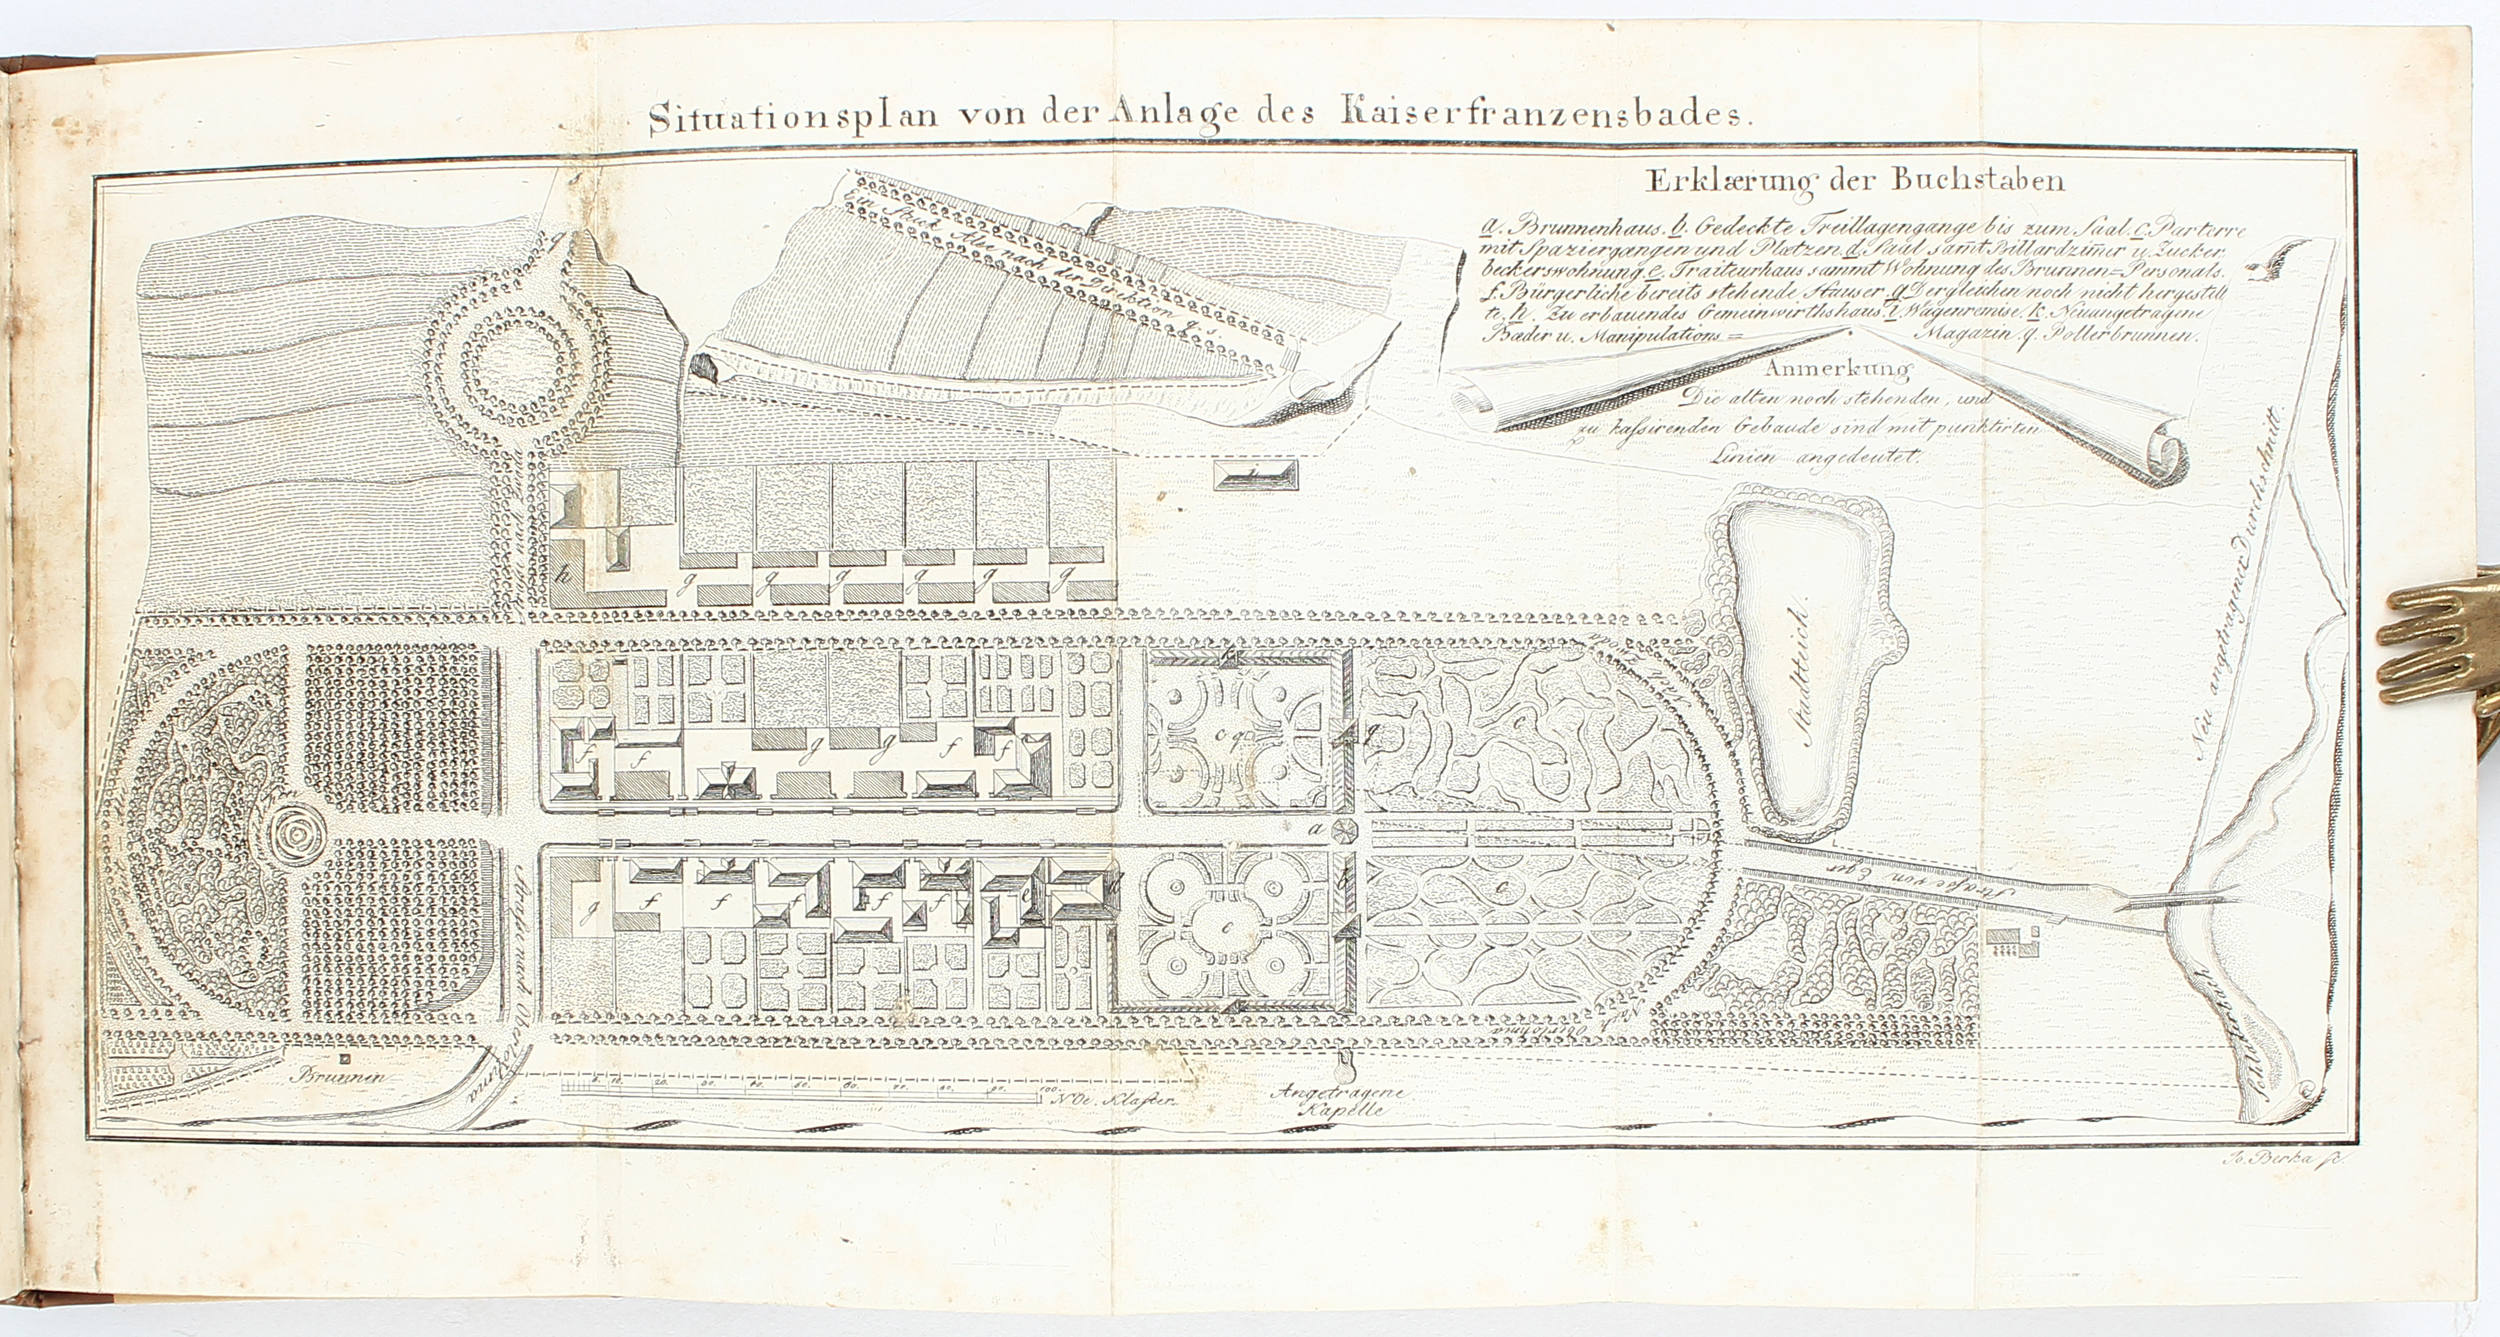 Situationsplan von der Anlage des Kaiserfranzensbades.
Erklærung der Buchstaben
a. Brunnenhaus. b. Gedeckte Treillagengange bis zum Saal. c. Parterre
mit Spaziergængen und Plætzen. d. Saal sam̄t Billardzim̄er u. Zucker:
beckerswohnung. e. Traiteurhaus sammt Wohnung des Brunnen=Personals.
f. Bürgerliche bereits stehende Häuser. g Dergleichen noch nicht hergestell
te. h. Zu erbauendes Gemeinwirthshaus. i. Wagenremise. k. Neuangetragene
Bæder u. Manipulations = Magazin. q. Pollerbrunnen.
Anmerkung
Die alten noch stehenden, und
zu kassirenden Gebaude sind mit punktirten
Linien angedeutet.
Ein Stück Alee nach der Direktion q. s.
q
s
i
h
g g g g g g
Stadtteich.
Neu angetragener Durchschnitt.
k
f f g g f f
c q
q
a
Strasse von Eger
g f f f f f e d
c
b
c
k
Strasse nach
Nach Oberlohma
Schladerbach
Brunnen
5. 10. 20. 30. 40. 50. 60. 70. 80. 90. 100.
N Oe. Klafter.
Angetragene
Kapelle
Jo. Berka sc.